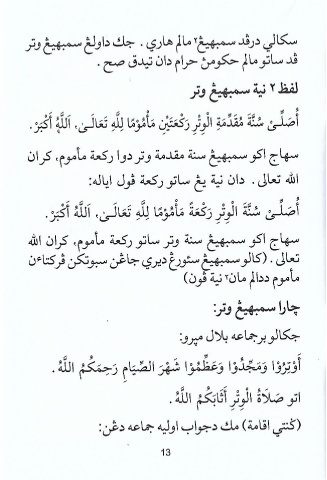 سكالي درڤد سمبهيڠ٢ مالم هاري . جك داولڠ سمبهيڠ وتر
ڤد ساتو مالم حكومڽ حرام دان تيدق صح .
لفظ ٢ نية سمبهيڠ وتر
أُصَلِّىْ سُنَّةَ مُقَدِّمَةِ الْوِتْرِ رَكْعَتَيْنِ مَأْمُوْمًا لِلَّهِ تَعَالَىٰ، اَللَّهُ أَكْبَرْ.
سهاج اكو سمبهيڠ سنة مقدمة وتر دوا ركعة مأموم، كران
الله تعالى . دان نية يڠ ساتو ركعة ڤول اياله:
أُصَلِّىْ سُنَّةَ الْوِتْرِ رَكْعَةً مَأْمُوْمًا لِلَّهِ تَعَالَىٰ، اَللَّهُ أَكْبَرْ.
سهاج اكو سمبهيڠ سنة وتر ساتو ركعة مأموم، كران الله
تعالى . (كالو سمبهيڠ سئورڠ ديري جاڠن سبوتكن ڤركتاءن
مأموم ددالم مان٢ نية ڤون)
چارا سمبهيڠ وتر:
جكالو برجماعه بلال ميرو:
أَوْتِرُوْا وَمَجِّدُوْا وَعَظِّمُوْا شَهْرَ الصِّيَامِ رَحِمَكُمُ اللَّهُ .
اتو صَلَاةُ الْوِتْرِ أَثَابَكُمُ اللَّهُ .
(ڬنتي اقامة) مك دجواب اوليه جماعه دڠن:
13